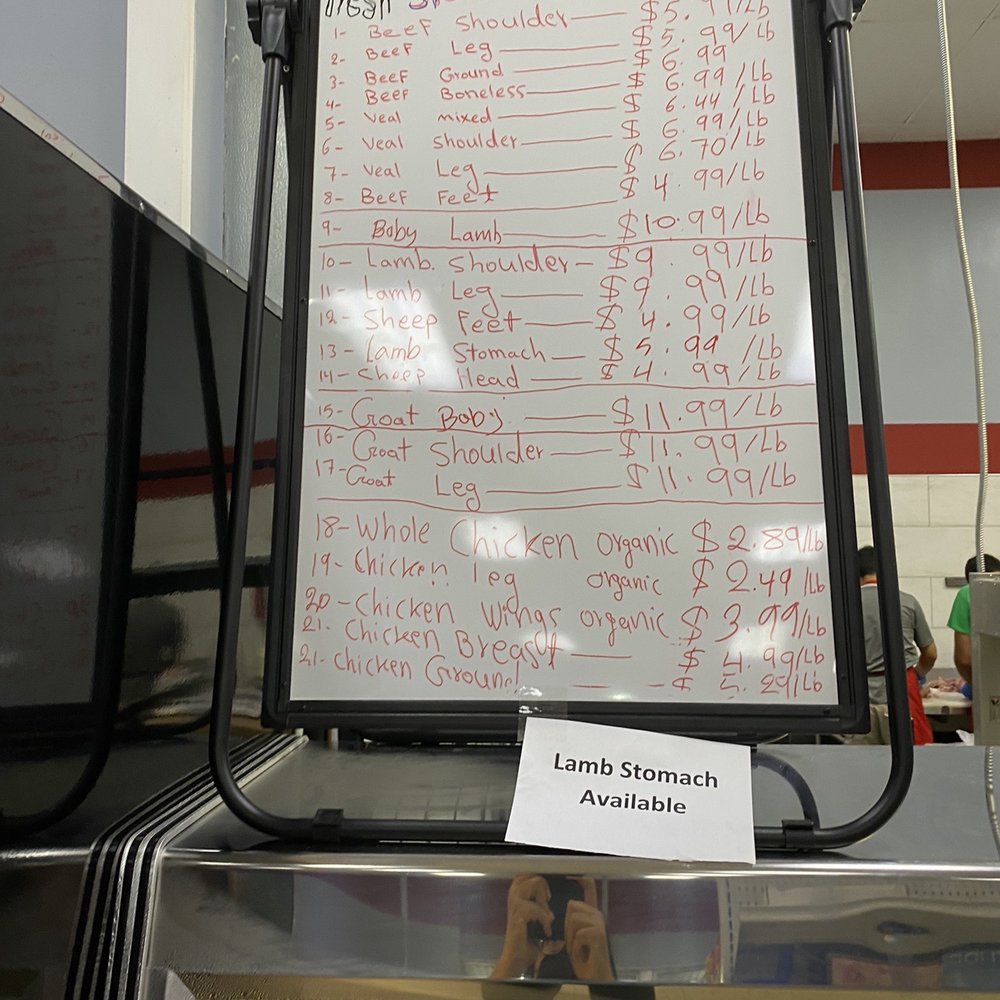 1- Beef Shoulder $5.99/Lb
2- Beef Leg $5.99/Lb
3- Beef Ground $6.99
4- Beef Boneless $6.99/Lb
5- Veal mixed $6.44/Lb
6- Veal Shoulder $6.99/Lb
7- Veal Leg $6.70/Lb
8- Beef Feet $4.99/Lb
9- Baby Lamb $10.99/Lb
10- Lamb. Shoulder- $9.99/Lb
11- Lamb Leg $9.99/Lb
12- Sheep Feet $4.99/Lb
13- Lamb Stomach $5.99/Lb
14- Sheep Head $4.99/Lb
15- Goat Baby $11.99/Lb
16- Goat Shoulder $11.99/Lb
17- Goat Leg $11.99/Lb
18- Whole Chicken organic $2.89/Lb
19- Chicken leg organic $2.49/Lb
20- Chicken Wings organic $3.99/Lb
21- Chicken Breast $4.99/Lb
21- Chicken Ground $5.29/Lb
Lamb Stomach
Available